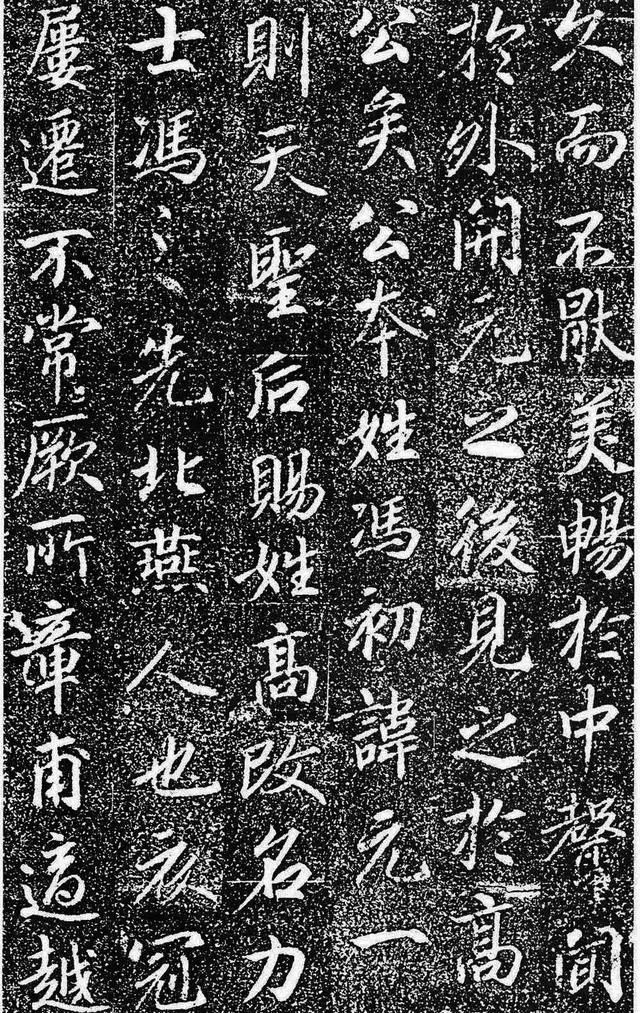 久而不厭美暢於中聲聞
於外開元之後見之於高
公矣公本姓馮初諱元一
則天聖后賜姓高改名力
士馮之先北燕人也衣冠
屢遷不常厥所章甫適越